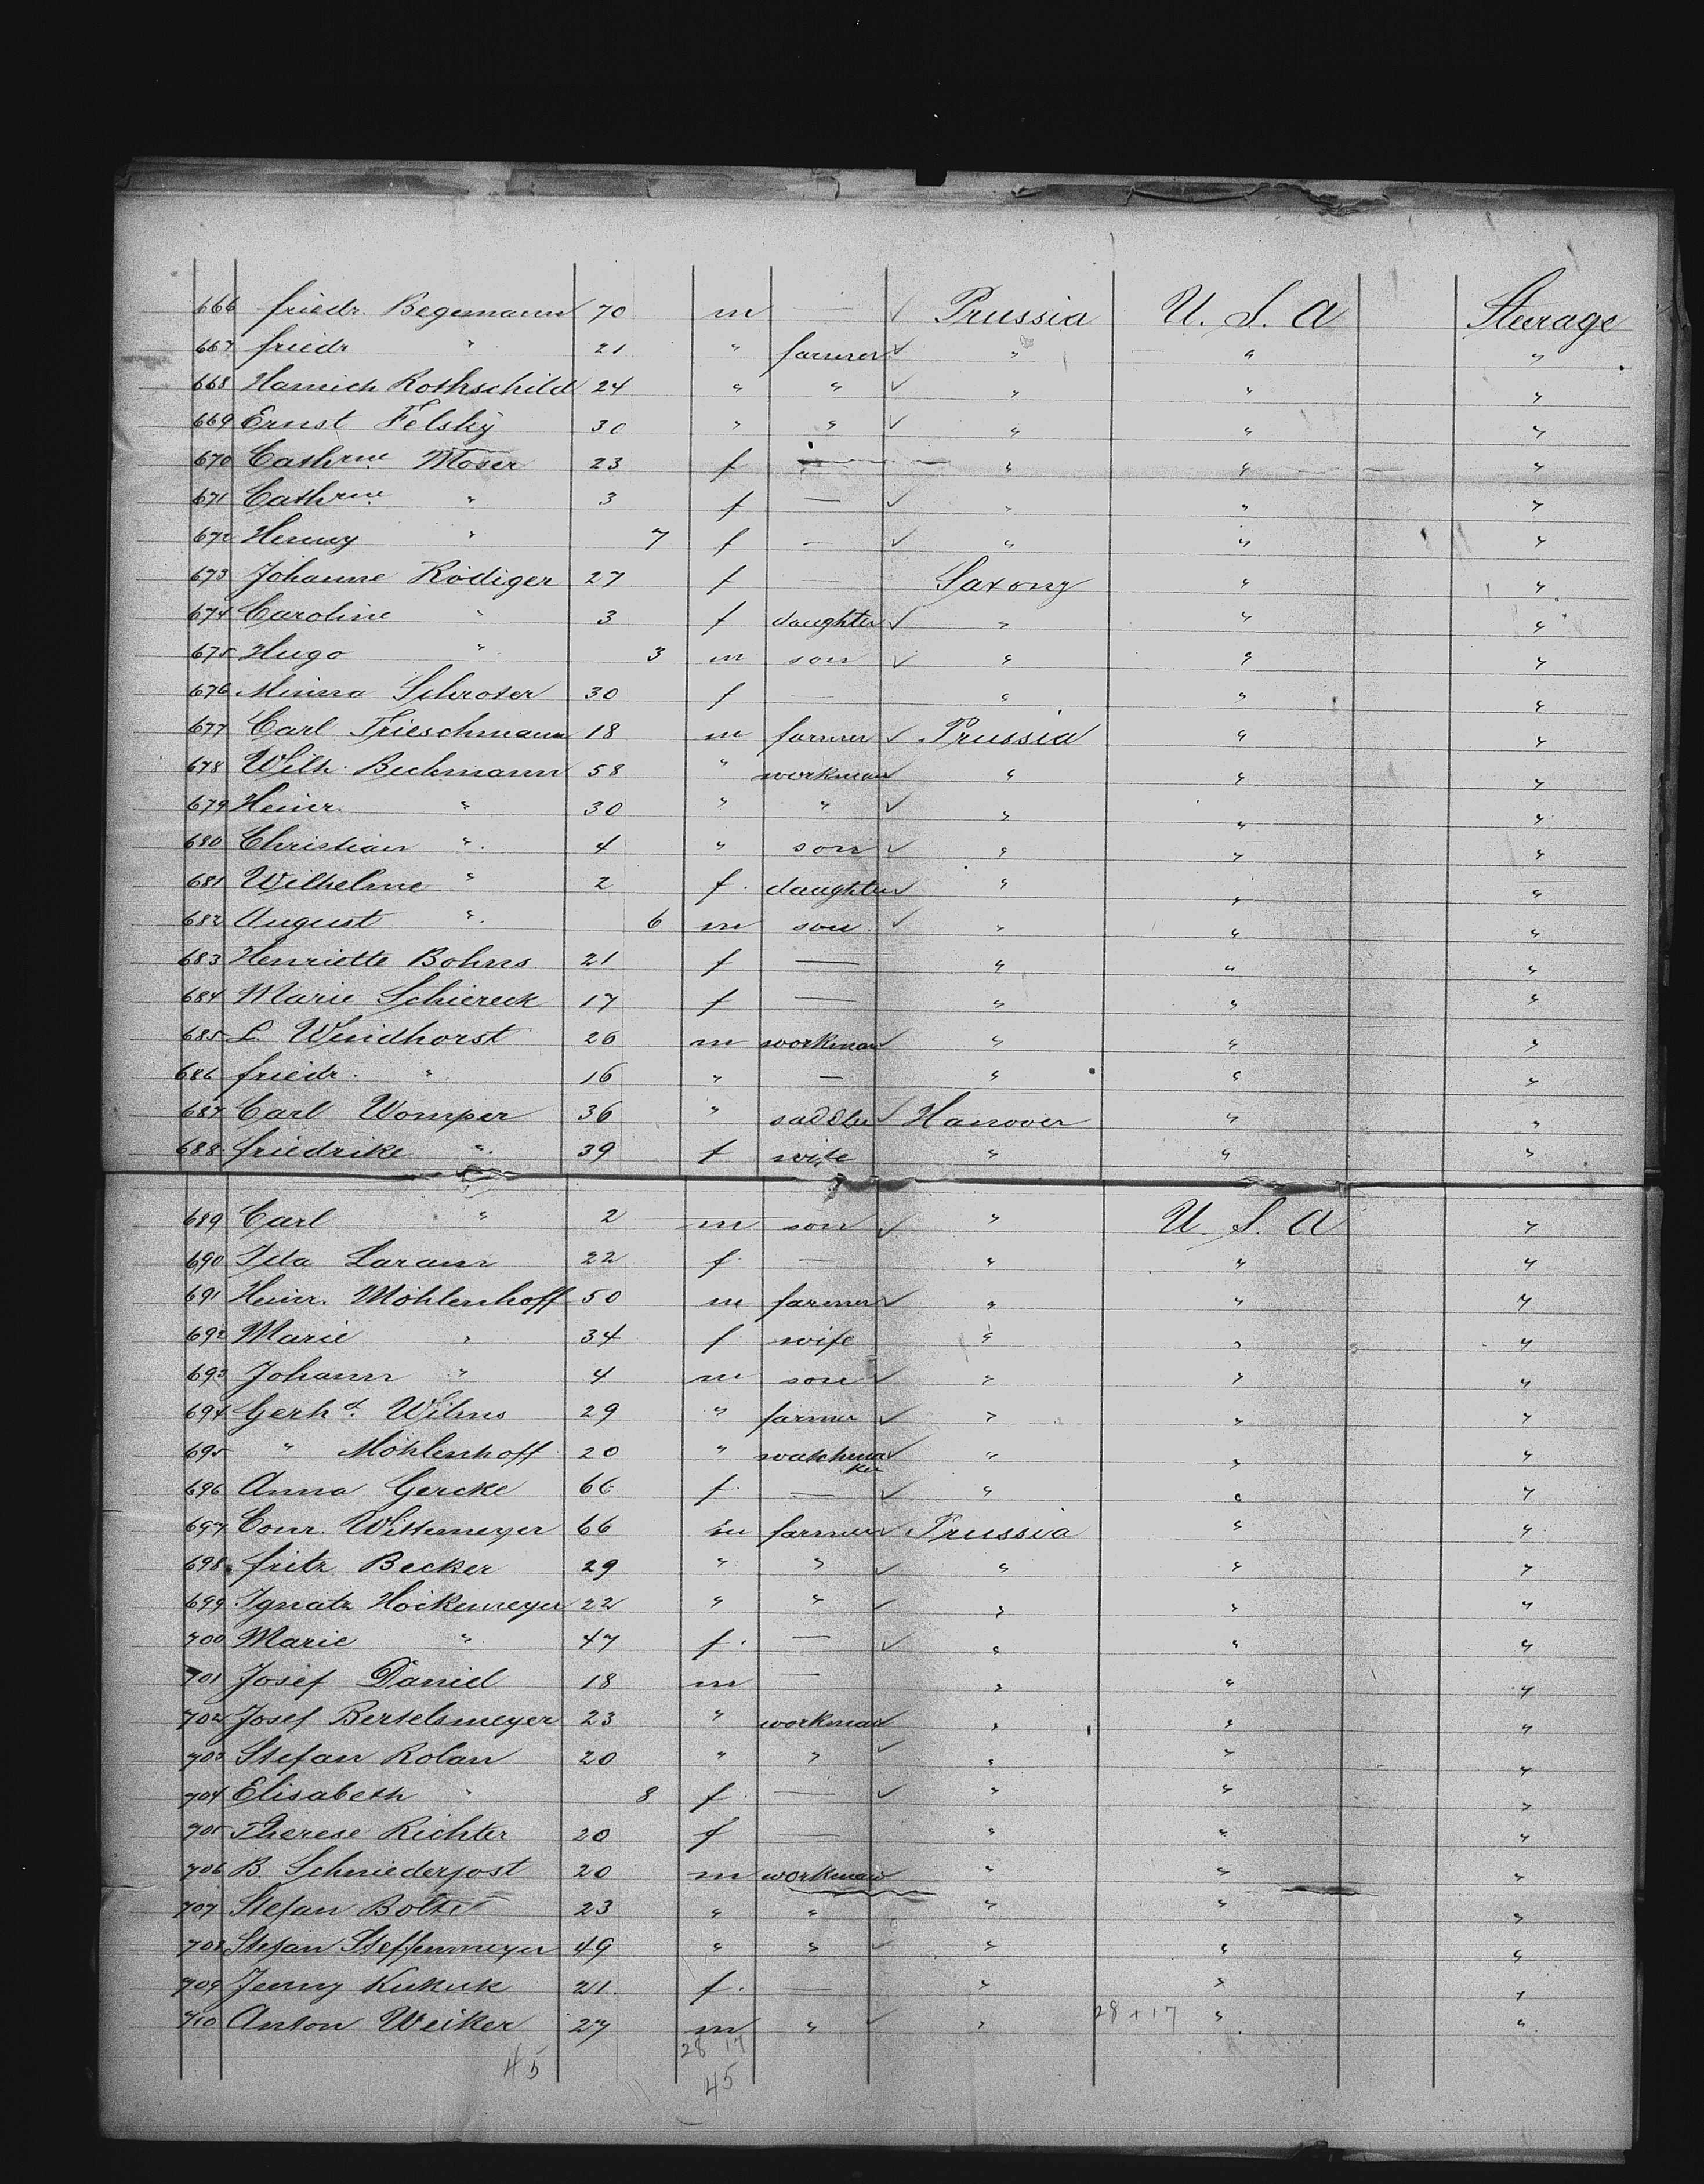 666 Friedr. Begemann 70 m — ✓ Prussia U. S. A Steerage
667 Friedr " 21 " farmer ✓ " " "
668 Heinrich Rothschild 24 " " ✓ " " "
669 Ernst Felsky 30 " " ✓ " " "
670 Cathrne Moser 23 f — " " "
671 Cathrne " 3 f — ✓ " " "
672 Henny " 7 f — ✓ " " "
673 Johanne Rödiger 27 f — Saxony " "
674 Caroline " 3 f daughter ✓ " " "
675 Hugo " 3 m son ✓ " " "
676 Minna 30 f — " " "
677 Carl Frieschmann 18 m farmer ✓ Prussia " "
678 Wilh. Beckmann 58 " workman ✓ " " "
679 Heinr. " 30 " " ✓ " " "
680 Christian " 4 " son ✓ " " "
681 Wilhelmne " 2 f. daughter ✓ " " "
682 August " 6 m son ✓ " " "
683 Henriette Bohns 21 f — " " "
684 Marie Schiereck 17 f — " " "
685 L. Windhorst 26 m workman ✓ " " "
686 Friedr. " 16 " — " " "
687 Carl Womper 36 " saddler ✓ Hanover " "
688 Friedrike " 39 f wife " " "
689 Carl " 2 m son ✓ " U. S. A "
690 Ida 22 f — " " "
691 Heinr. Möhlenhoff 50 m farmer ✓ " " "
692 Marie " 34 f wife " " "
693 Johann " 4 m son ✓ " " "
694 Gerhd. Wilms 29 " farmer ✓ " " "
695 " Möhlenhoff 20 " watchmaker ✓ " " "
696 Anna Gercke 66 f. — ✓ " " "
697 Conr. Wittemeyer 66 m farmer ✓ Prussia " "
698 Fritz Becker 29 " " ✓ " " "
699 Ignatz Höckemeyer 22 " " ✓ " " "
700 Marie " 47 f. — ✓ " " "
701 Josef Daniel 18 m — " " "
702 Josef Bertelsmeyer 23 " workman ✓ " " "
703 Stefan Rolan 20 " " ✓ " " "
704 Elisabeth " 8 f — ✓ " " "
705 Therese Richter 20 f — " " "
706 B. Schniederjost 20 m workman ✓ " " "
707 Stefan Bolte 23 " " " " "
708 Stefan Steffenmeyer 49 " " ✓ " " "
709 Jenny Kukuk 21. f. — " " "
710 Anton Weiker 27 m " ✓ " 28 + 17 " "
28 17
45 45